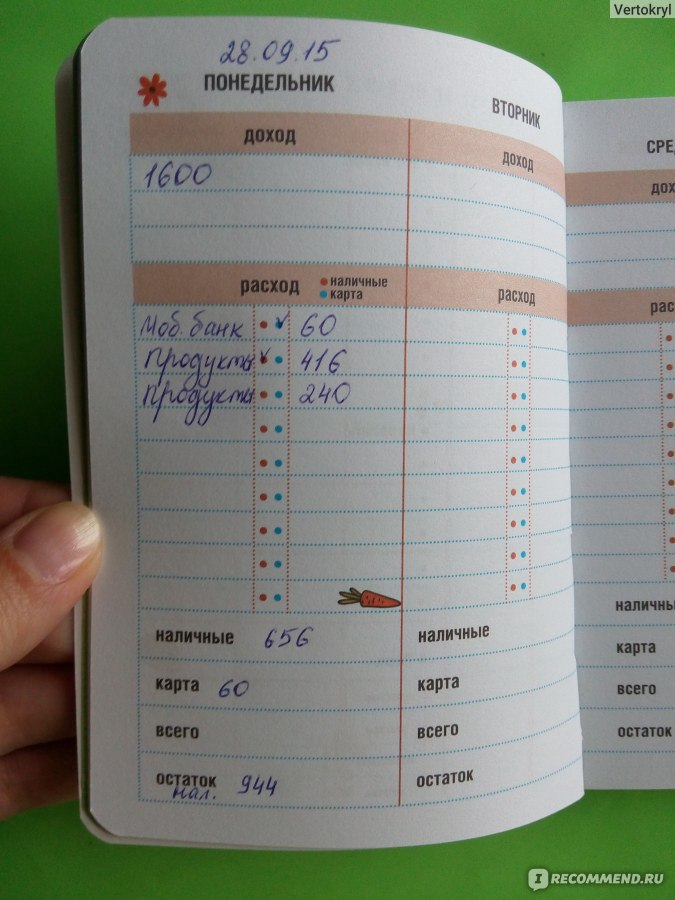 Vertokryl
28.09.15
ПОНЕДЕЛЬНИК
ДОХОД
1600
РАСХОД
наличные
карта
Моб. банк 60
Продукты 416
Продукты 240
наличные 656
карта 60
всего
остаток
нал. 944
ВТОРНИК
ДОХОД
РАСХОД
наличные
карта
всего
остаток
СРЕД
ДОХ
РАС
наличны
карта
всего
остаток
IRECOMMEND.RU